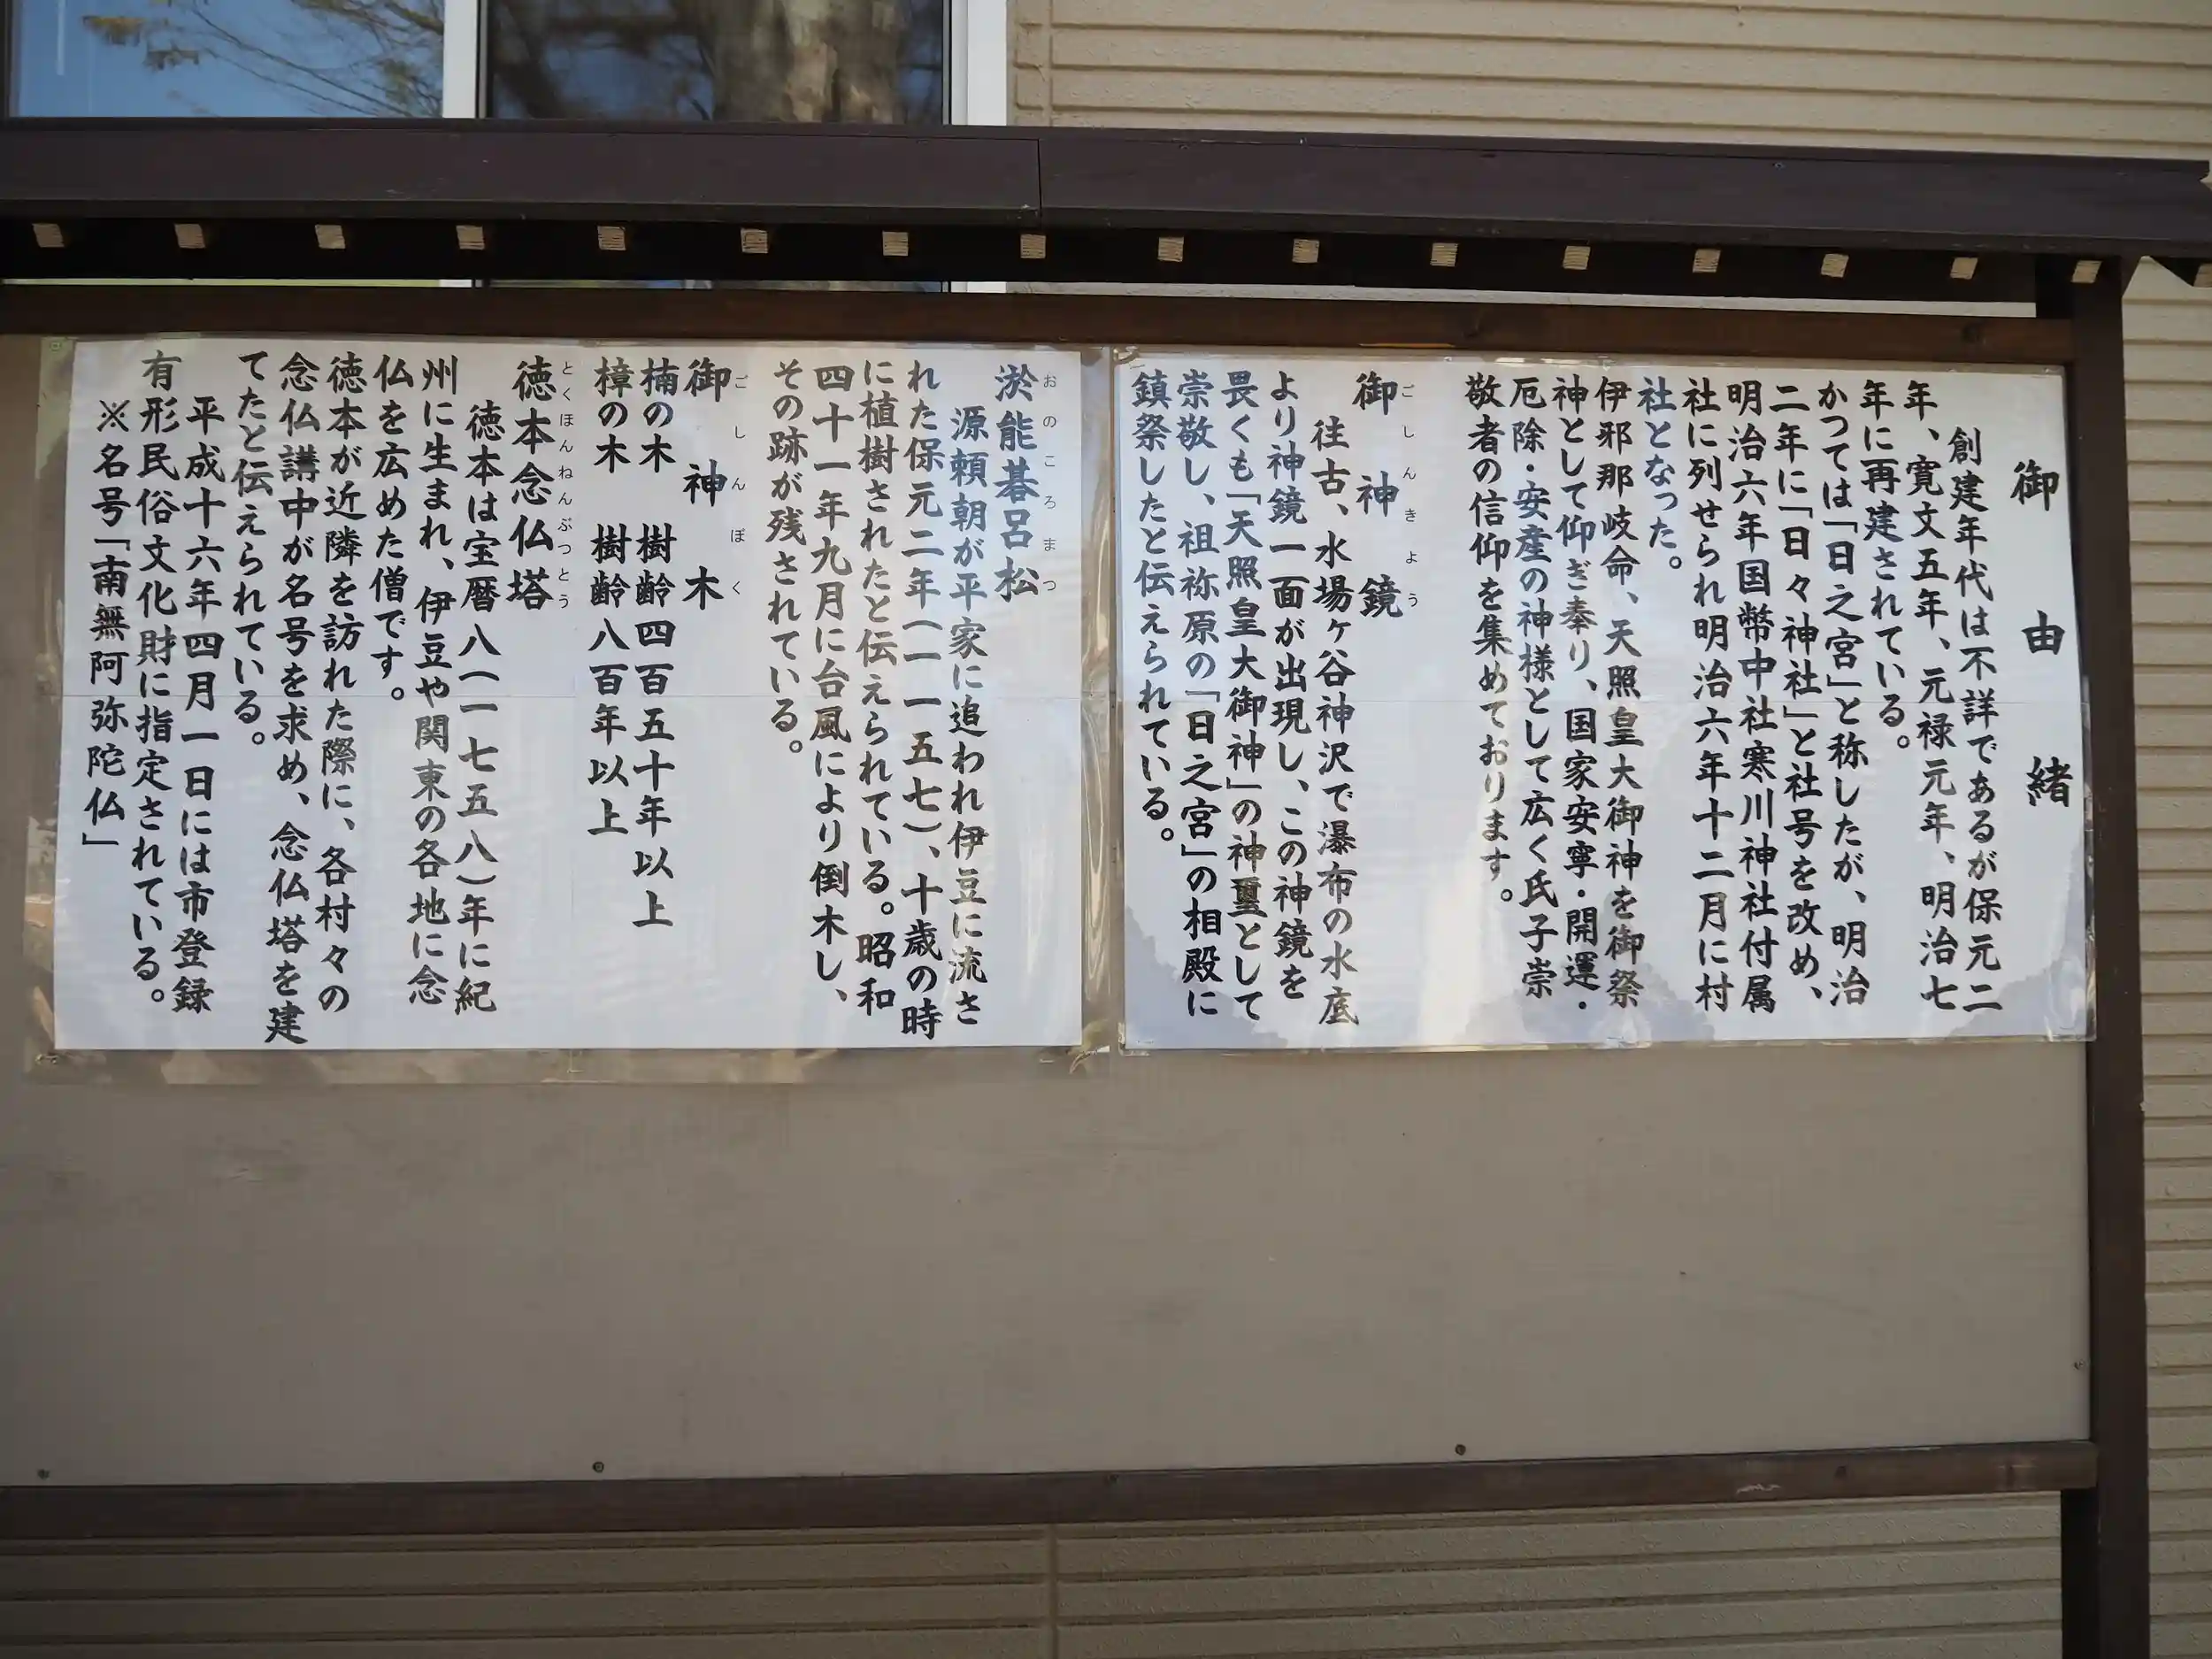 御由緒
創建年代は不詳であるが保元二
年、寛文五年、元禄元年、明治七
年に再建されている。
かつては「日之宮」と称したが、明治
二年に「日々神社」と社号を改め、
明治六年国幣中社寒川神社付属
社に列せられ明治六年十二月に村
社となった。
伊邪那岐命、天照皇大御神を御祭
神として仰ぎ奉り、国家安寧・開運・
厄除・安産の神様として広く氏子崇
敬者の信仰を集めております。
ごしんきょう
御神鏡
往古、水場ヶ谷神沢で瀑布の水底
より神鏡一面が出現し、この神鏡を
畏くも「天照皇大御神」の神璽として
崇敬し、祖祢原の「日之宮」の相殿に
鎮祭したと伝えられている。
おのころまつ
淤能碁呂松
源頼朝が平家に追われ伊豆に流さ
れた保元二年(一一五七)、十歳の時
に植樹されたと伝えられている。昭和
四十一年九月に台風により倒木し、
その跡が残されている。
ごしんぼく
御神木
楠の木 樹齢四百五十年以上
樟の木 樹齢八百年以上
とくほんねんぶつとう
徳本念仏塔
徳本は宝暦八(一七五八)年に紀
州に生まれ、伊豆や関東の各地に念
仏を広めた僧です。
徳本が近隣を訪れた際に、各村々の
念仏講中が名号を求め、念仏塔を建
てたと伝えられている。
平成十六年四月一日には市登録
有形民俗文化財に指定されている。
※名号「南無阿弥陀仏」